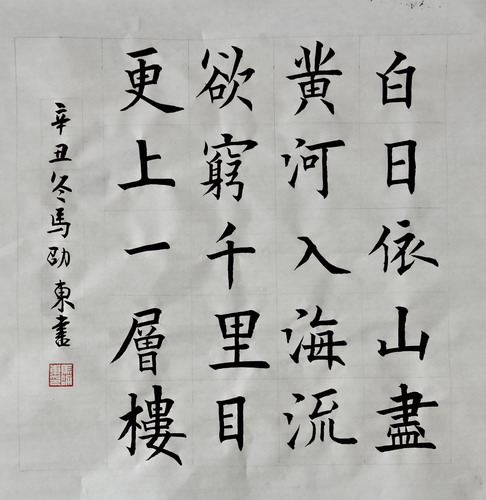 白日依山盡
黄河入海流
欲窮千里目
更上一層樓
辛丑冬馬劭東書